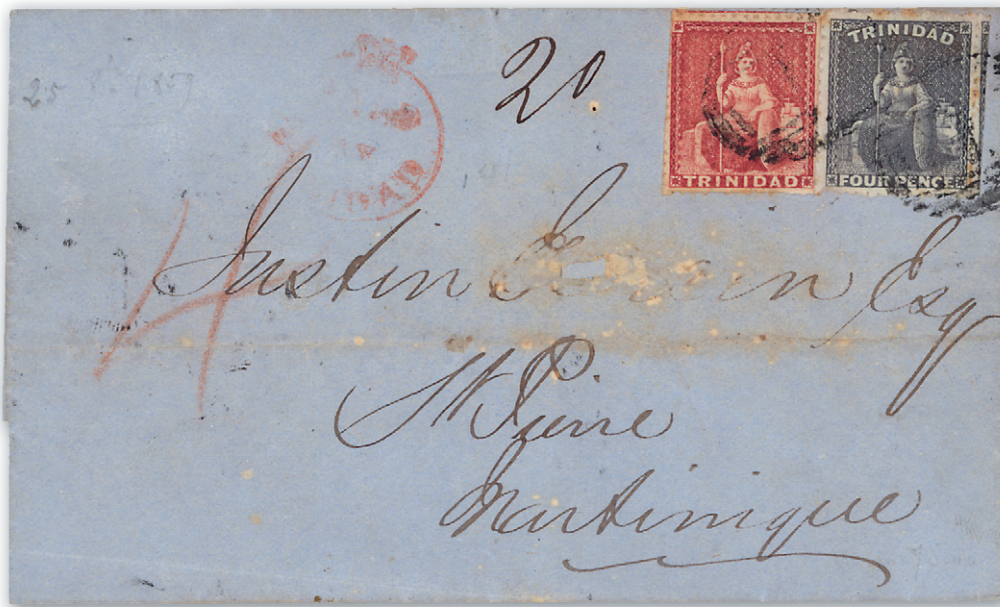 20
TRINIDAD
TRINIDAD
FOUR PENCE
4
Justin Esq
St Pierre
Martinique